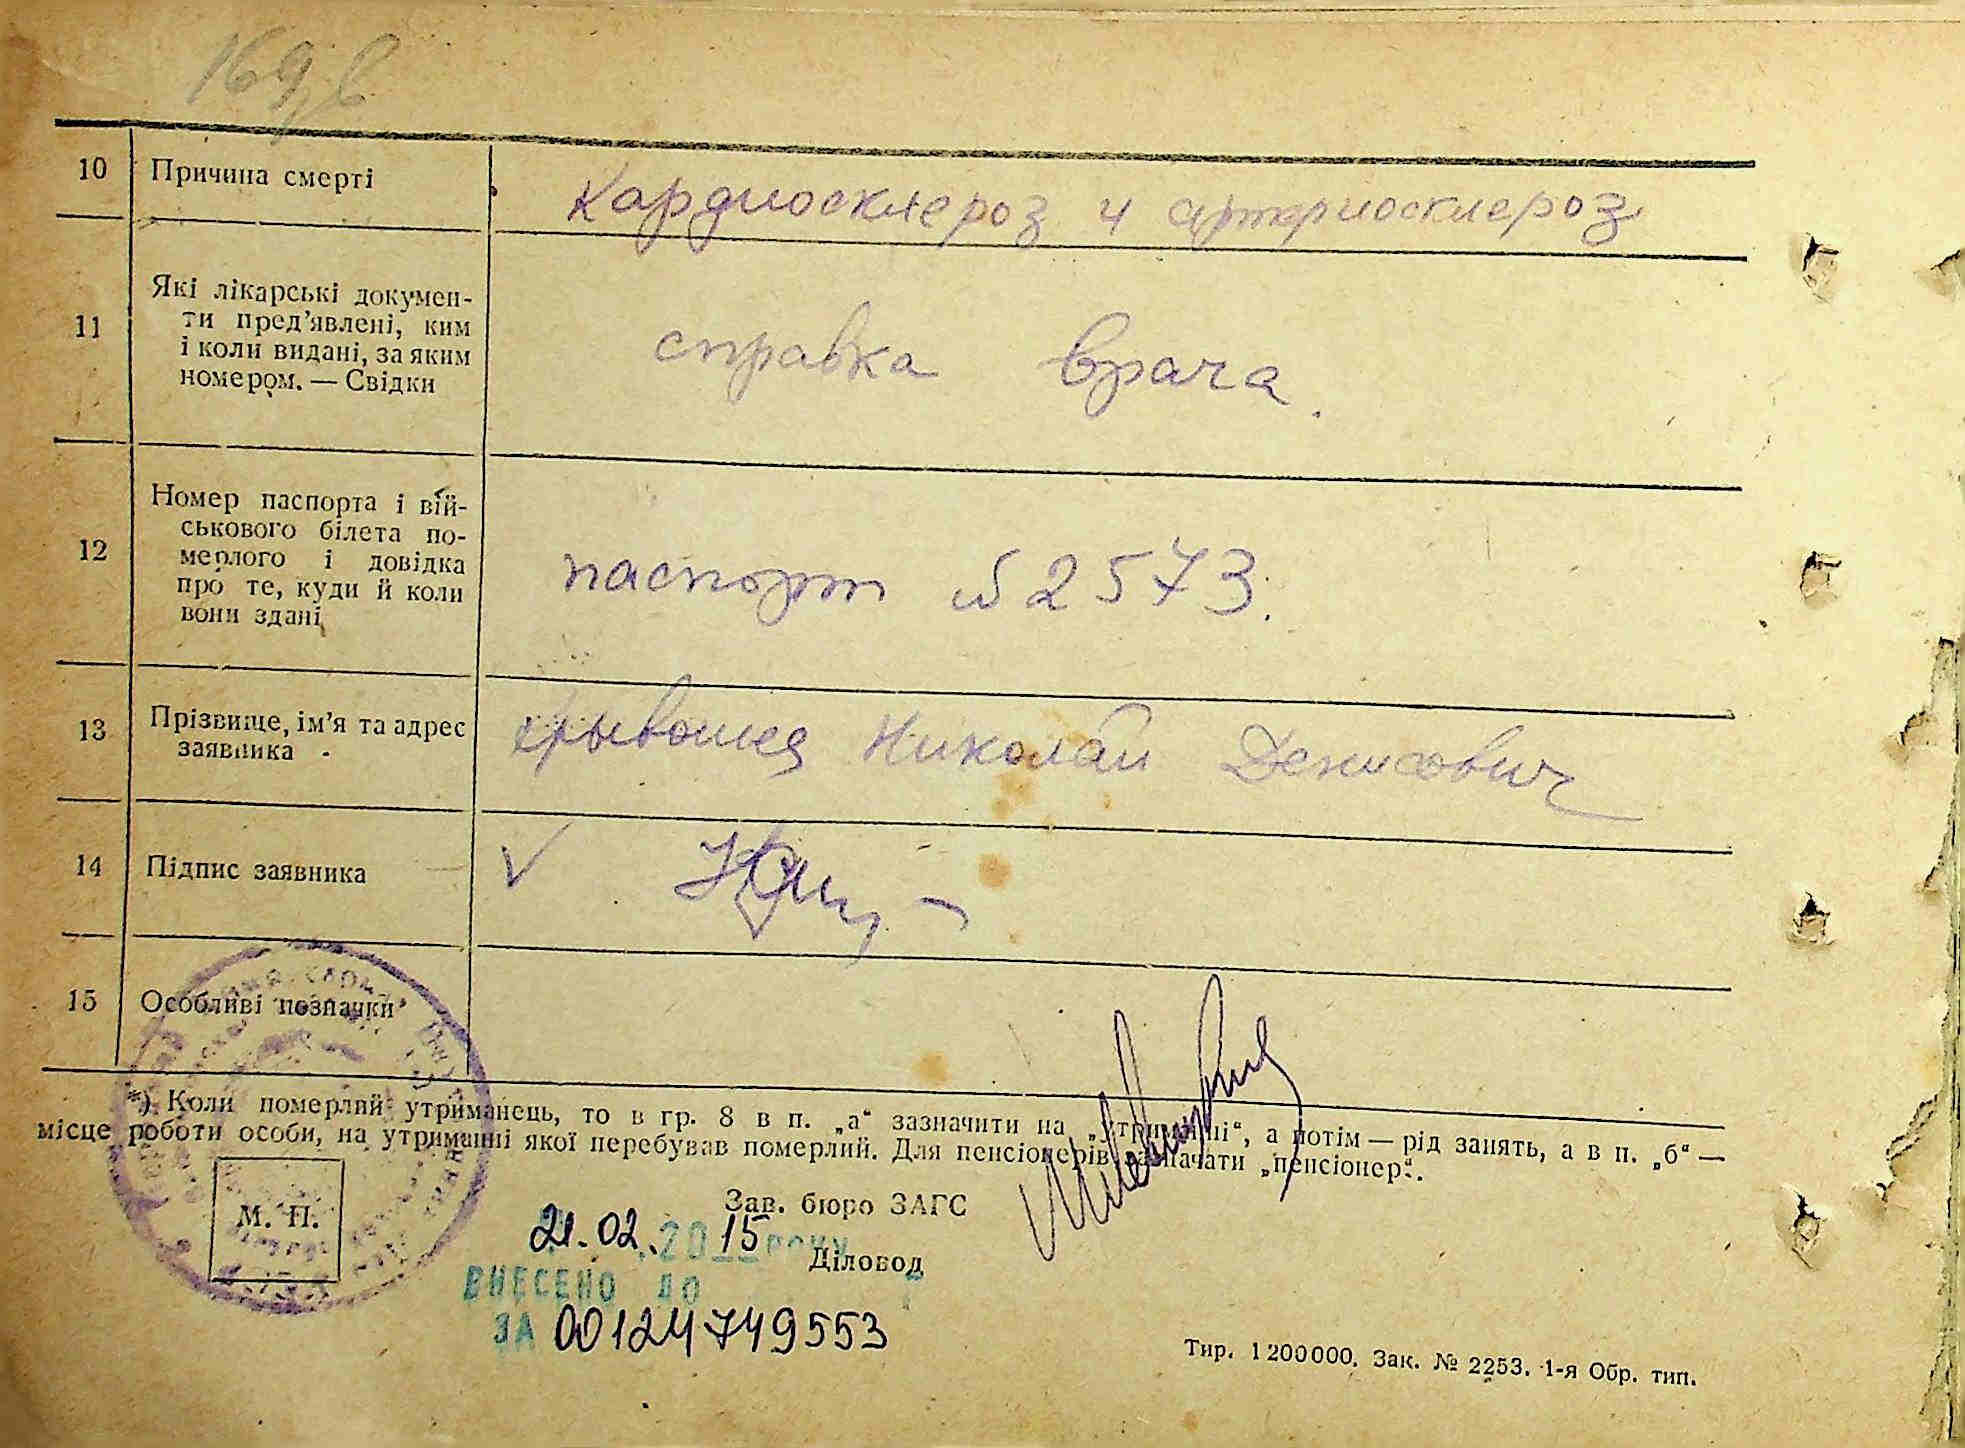 169,в
10 Причина смерті
Кардиосклероз и артериосклероз
11 Які лікарські докумен-
ти пред’явлені, ким
і коли видані, за яким
номером. — Свідки
справка врача.
12 Номер паспорта і вій-
ськового білета по-
мерлого і довідка
про те, куди й коли
вони здані
паспорт № 2573.
13 Прізвище, ім’я та адрес
заявника
Николай Денисович
14 Підпис заявника
15 Особливі позначки
*) Коли померлий утриманець, то в гр. 8 в п. „а“ зазначити на „утриманні“, а потім — рід занять, а в п. „б“ —
місце роботи особи, на утриманні якої перебував померлий. Для пенсіонерів зазначати „пенсіонер“.
М. П.
Зав. бюро ЗАГС
21.02.2015 року
Діловод
ВНЕСЕНО ДО
ЗА 00124749553
Тир. 1200000. Зак. № 2253. 1-я Обр. тип.